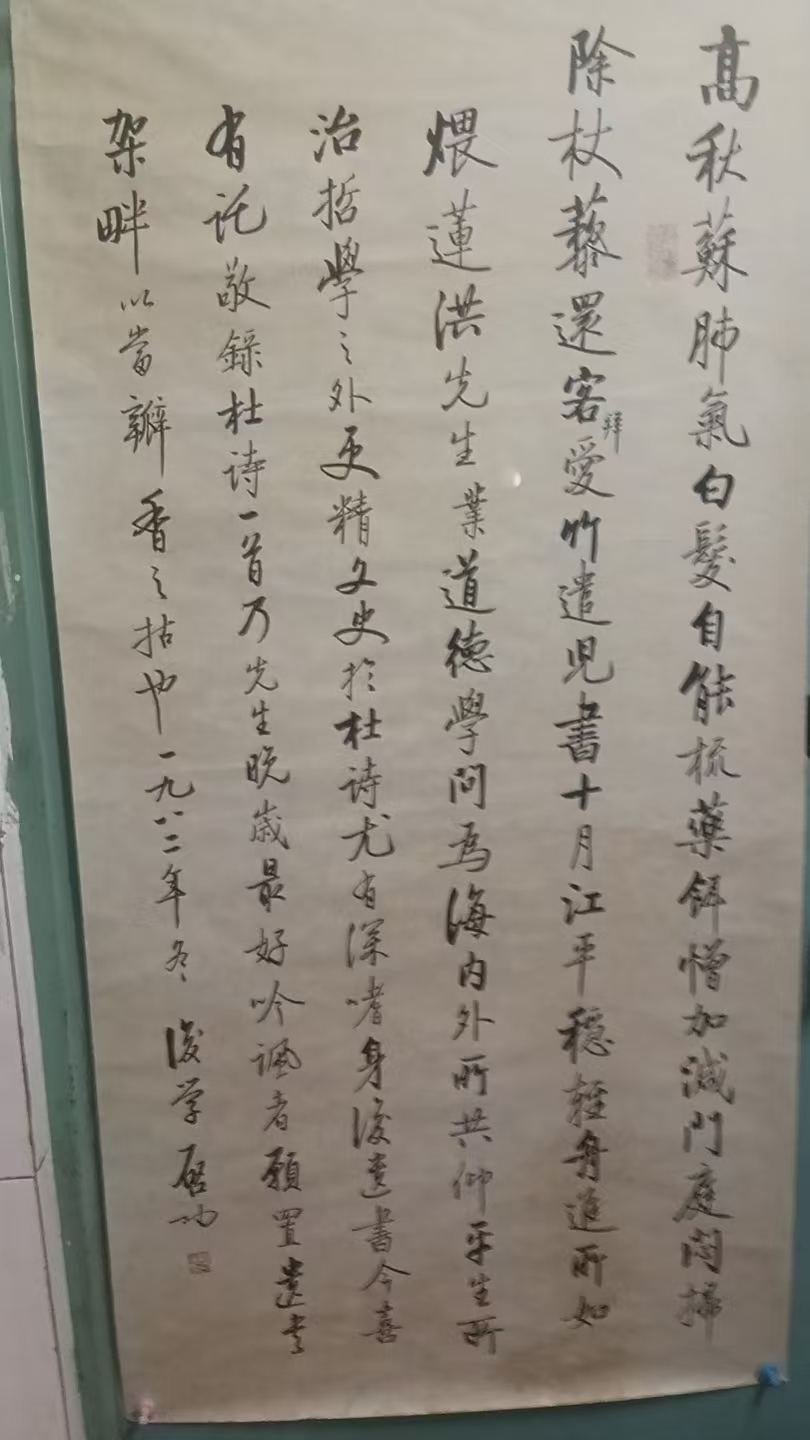 高秋蘇肺氣白髮自能梳藥餌憎加減門庭悶掃
除杖藜還客拜愛竹遣兒書十月江平穩輕舟進所如
煨蓮洪先生業道德學問為海内外所共仰平生所
治哲學之外更精文史於杜诗尤有深嗜身後遺書今喜
有託敬錄杜诗一首乃先生晚歲最好吟諷者願置遺書
架畔以當瓣香之拈也一九八二年冬 後学启功